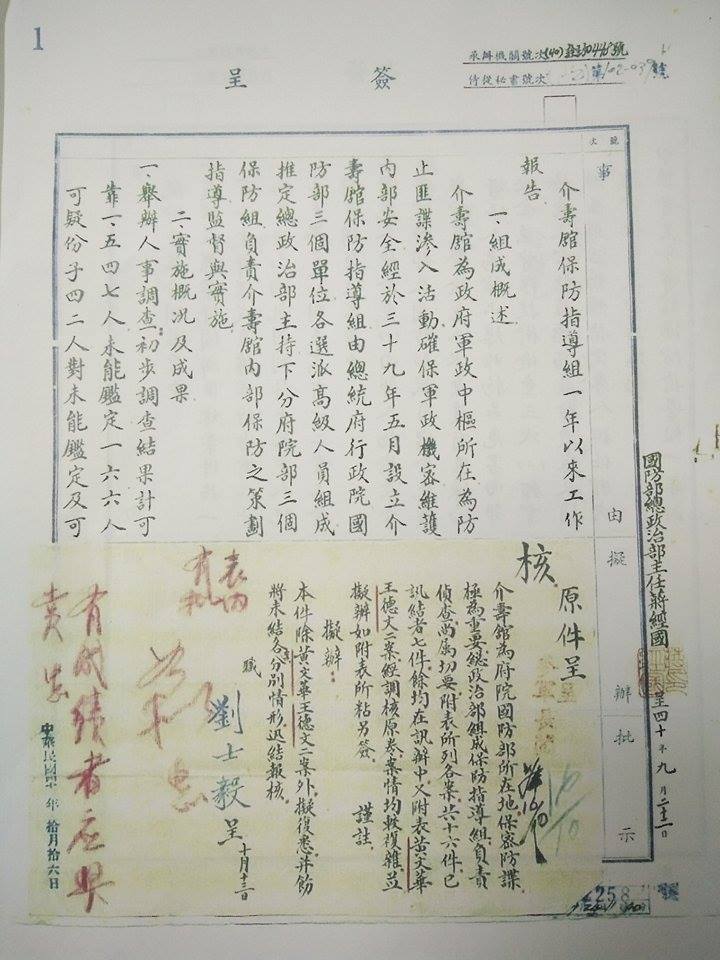 1
承辦機關號次(40)
侍從秘書號次 第102-039號
簽呈
號次
事由
擬辦
批示
介壽館保防指導組一年以來工作
報告
一、組成概述
介壽館為政府軍政中樞所在為防
止匪諜滲入活動確保軍政機密維護
內部安全經於三十九年五月設立介
壽館保防指導組由總統府行政院國
防部三個單位各選派高級人員組成
推定總政治部主持下分府院部三個
保防組負責介壽館內部保防之策劃
指導監督與實施
二、實施概況及成果
一、舉辦人事調查：初步調查結果計可
靠一、五四七人未能鑑定一六六人
可疑份子四二人對未能鑑定及可
國防部總政治部主任蔣經國
呈四十年九月二十二日
原件呈
核
介壽館為府院國防部所在地保密防諜
極為重要總政治部組成保防指導組負責
偵查尚屬切要附表所列各案共十六件已
訊結者七件餘均在訊辦中又附表黃文華
王德文二案經調核原卷案情均較複雜並
擬辦如附表所粘另簽 謹註
擬辦：
本件除黃文華王德文二案外擬復悉并飭
將未結各案分別情形迅結報核
職劉士毅呈 十月十三日
表內
有批
有成績者應與
中華民國四十年拾月拾六日
258